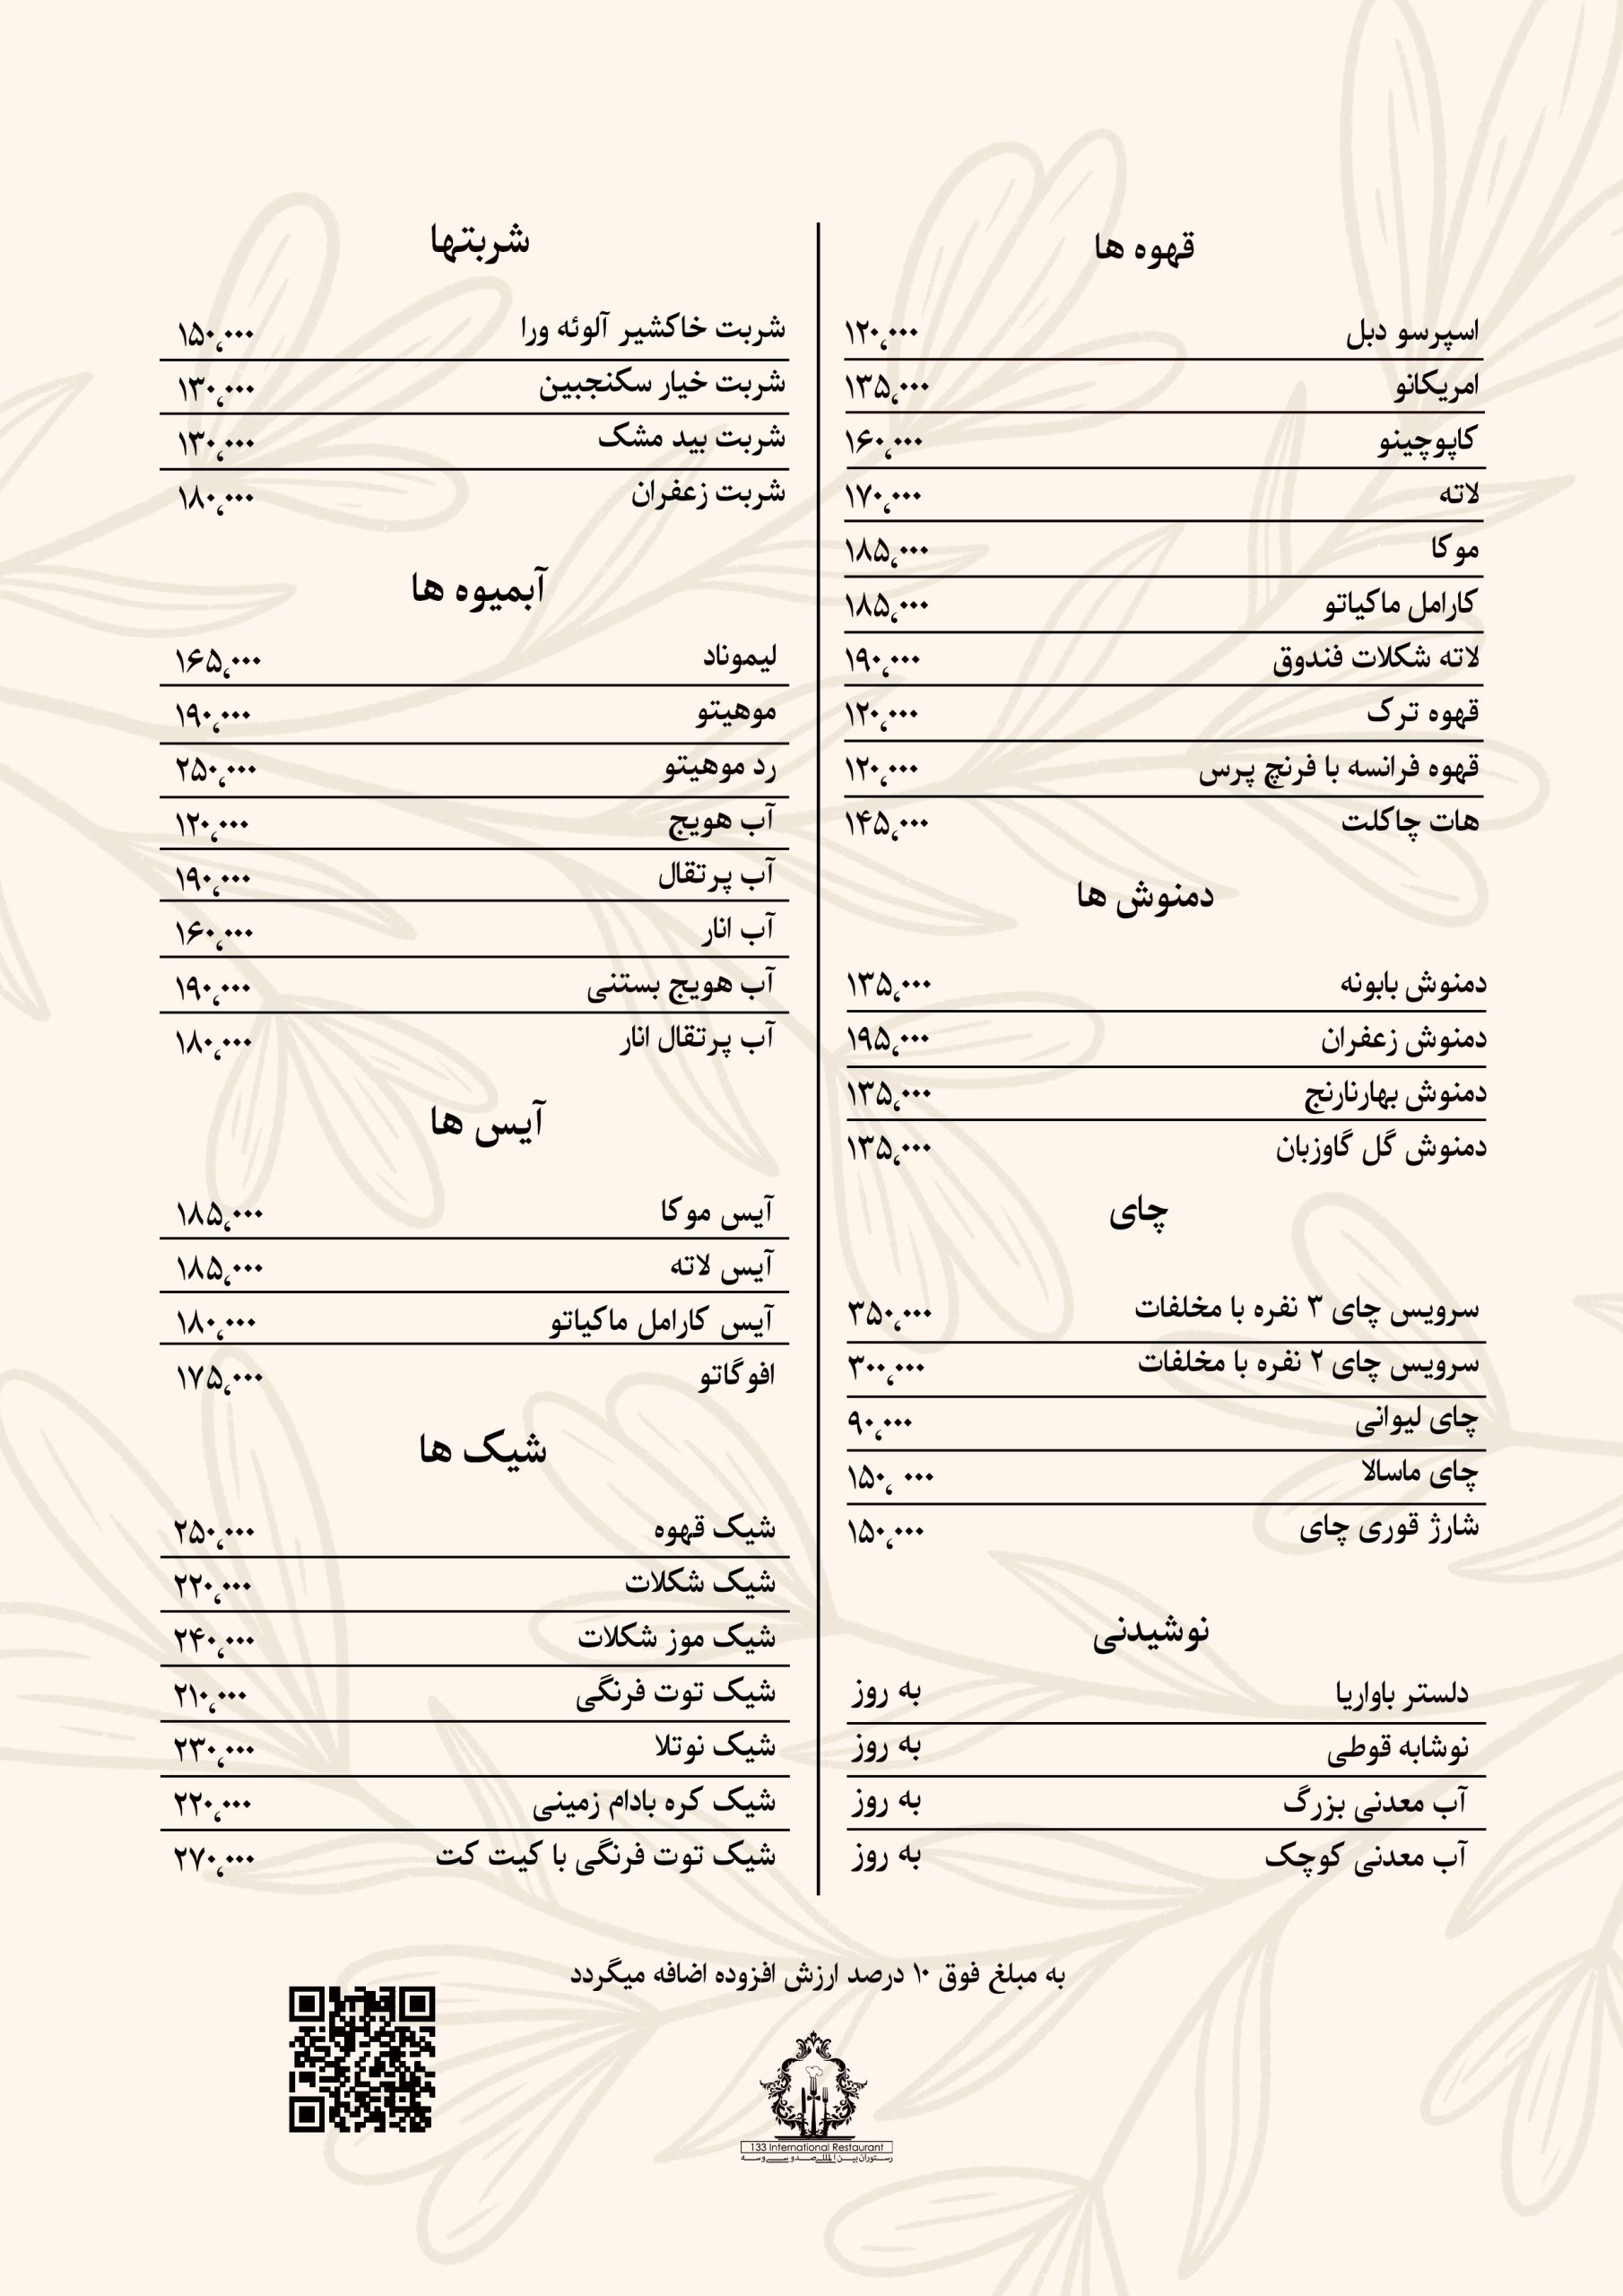 قهوه ها
اسپرسو دبل ۱۲۰،۰۰۰
امریکانو ۱۳۵،۰۰۰
کاپوچینو ۱۶۰،۰۰۰
لاته ۱۷۰،۰۰۰
موکا ۱۸۵،۰۰۰
کارامل ماکیاتو ۱۸۵،۰۰۰
لاته شکلات فندوق ۱۹۰،۰۰۰
قهوه ترک ۱۲۰،۰۰۰
قهوه فرانسه با فرنچ پرس ۱۲۰،۰۰۰
هات چاکلت ۱۴۵،۰۰۰
دمنوش ها
دمنوش بابونه ۱۳۵،۰۰۰
دمنوش زعفران ۱۹۵،۰۰۰
دمنوش بهارنارنج ۱۳۵،۰۰۰
دمنوش گل گاوزبان ۱۳۵،۰۰۰
چای
سرویس چای ۳ نفره با مخلفات ۳۵۰،۰۰۰
سرویس چای ۲ نفره با مخلفات ۳۰۰،۰۰۰
چای لیوانی ۹۰،۰۰۰
چای ماسالا ۱۵۰، ۰۰۰
شارژ قوری چای ۱۵۰،۰۰۰
نوشیدنی
دلستر باواریا به روز
نوشابه قوطی به روز
آب معدنی بزرگ به روز
آب معدنی کوچک به روز
شربتها
شربت خاکشیر آلوئه ورا ۱۵۰،۰۰۰
شربت خیار سکنجبین ۱۳۰،۰۰۰
شربت بید مشک ۱۳۰،۰۰۰
شربت زعفران ۱۸۰،۰۰۰
آبمیوه ها
لیموناد ۱۶۵،۰۰۰
موهیتو ۱۹۰،۰۰۰
رد موهیتو ۲۵۰،۰۰۰
آب هویج ۱۲۰،۰۰۰
آب پرتقال ۱۹۰،۰۰۰
آب انار ۱۶۰،۰۰۰
آب هویج بستنی ۱۹۰،۰۰۰
آب پرتقال انار ۱۸۰،۰۰۰
آیس ها
آیس موکا ۱۸۵،۰۰۰
آیس لاته ۱۸۵،۰۰۰
آیس کارامل ماکیاتو ۱۸۰،۰۰۰
افوگاتو ۱۷۵،۰۰۰
شیک ها
شیک قهوه ۲۵۰،۰۰۰
شیک شکلات ۲۲۰،۰۰۰
شیک موز شکلات ۲۴۰،۰۰۰
شیک توت فرنگی ۲۱۰،۰۰۰
شیک نوتلا ۲۳۰،۰۰۰
شیک کره بادام زمینی ۲۲۰،۰۰۰
شیک توت فرنگی با کیت کت ۲۷۰،۰۰۰
به مبلغ فوق ۱۰ درصد ارزش افزوده اضافه میگردد
133 International Restaurant
رستوران بین المللی صد و سی و سه